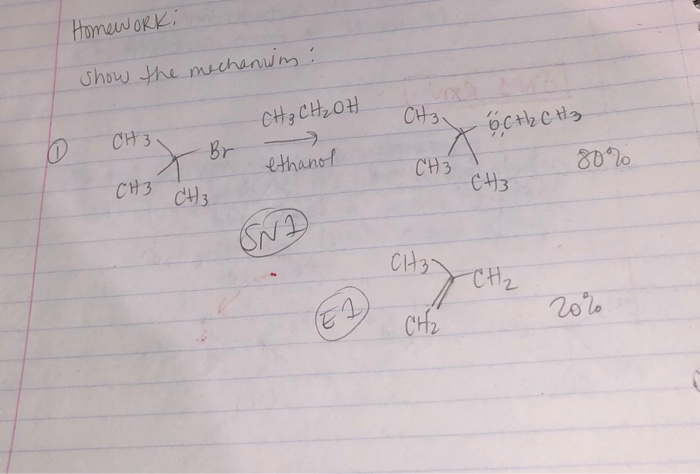 Homework:
Show the mechanism:
① CH3 CH3 CH3 Br
CH3CH2OH
ethanol
CH3 CH3 CH3 ÖCH2CH3
80%
SN1
E1
CH3 CH2 CH2
20%